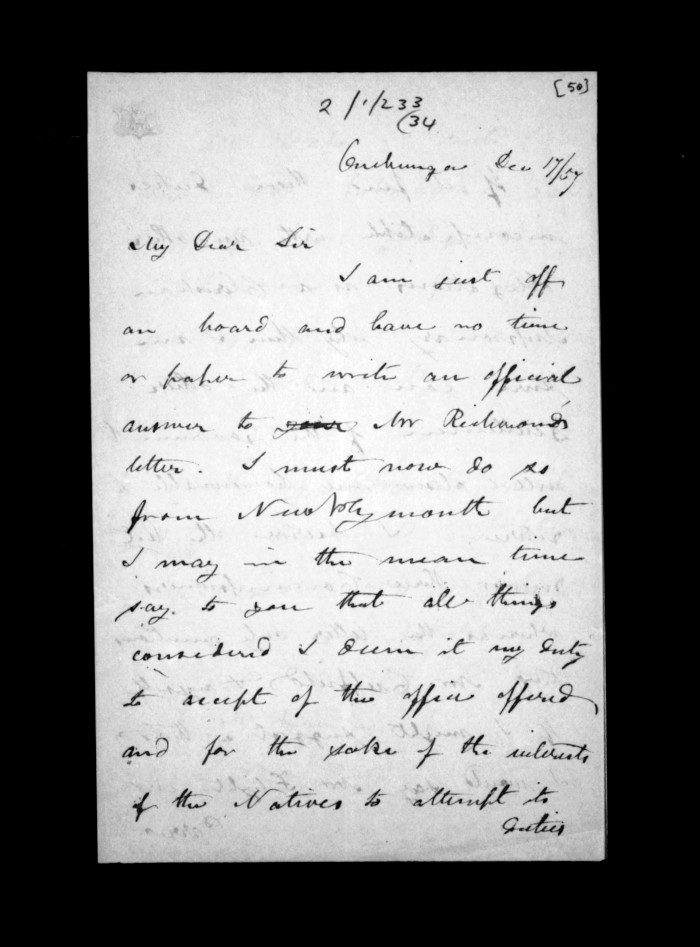 [50]
2/1/233
(34
Onehunga Dec 17/57
My Dear Sir
I am just off
on board and have no time
or paper to write an official
answer to your Mr Richmond's
letter. I must now do so
from New Plymouth but
I may in the mean time
say to you that all things
considered I deem it my duty
to accept of the office offered,
and for the sake of the interests
of the Natives to attempt its
duties